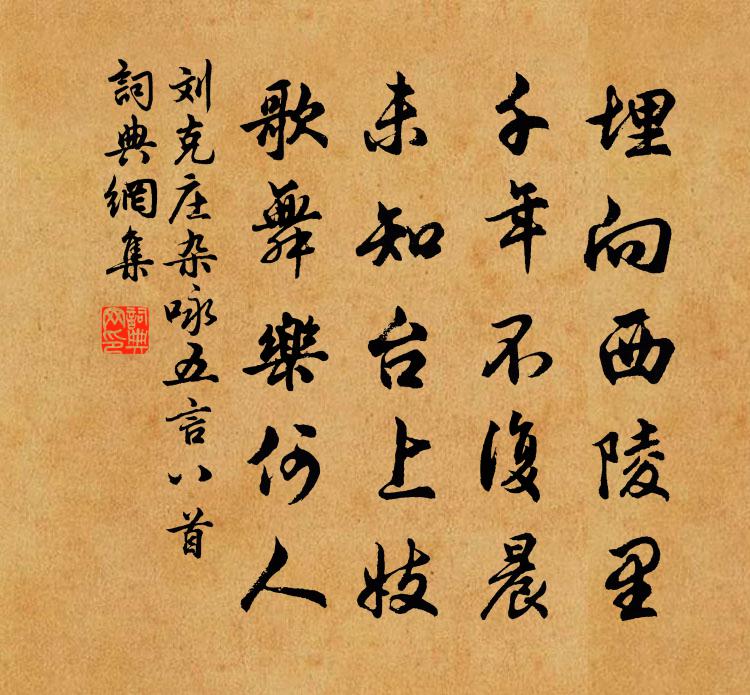 埋向西陵里
千年不復晨
未知台上妓
歌舞樂何人
刘克庄杂咏五言八首
詞典網集
詞典网印